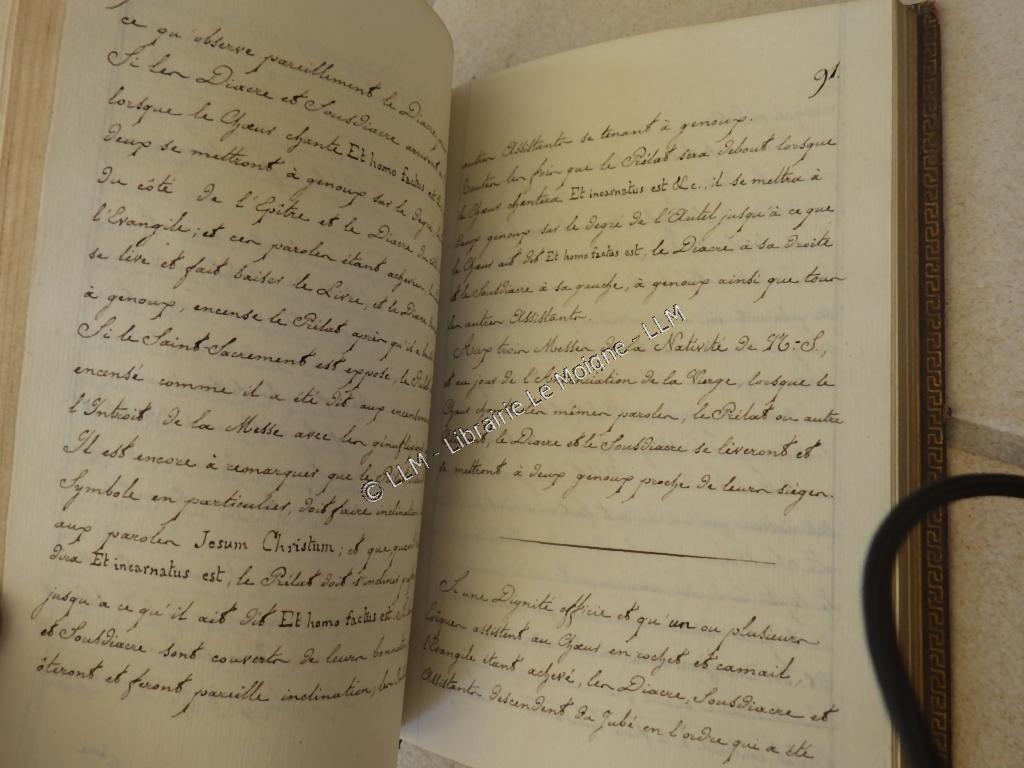 ce qu'observe pareillement le Diacre
Si les Diacre et Sousdiacre arrivent
lorsque le Chœur chante Et homo factus est
deux se mettront à genoux sur le degré,
du côté de l'Epître et le Diacre du côté
l'Evangile; et ces paroles étant achevées,
se lève et fait baiser le Livre, et le Diacre
à genoux, encense le Prélat après qu'il a
Si le Saint-Sacrement est exposé, le Prélat
encensé comme il a été dit aux encensemens
l'Introit de la Messe avec les génuflexions
Il est encore à remarquer que le
Symbole en particulier, doit faire inclination
aux paroles Jesum Christum; et que quand
dira Et incarnatus est, le Prélat doit s'incliner
jusqu'à ce qu'il ait dit Et homo factus est,
et Sousdiacre sont couverts de leurs bonnets
ôteront et feront pareille inclination; les
91.
autres Assistants se tenant à genoux.
Toutes les fois que le Prélat sera debout lorsque
le Chœur chantera Et incarnatus est &c., il se mettra à
deux genoux sur le degré de l'Autel jusqu'à ce que
le Chœur ait dit Et homo factus est, le Diacre à sa droite
et le Sousdiacre à sa gauche, à genoux ainsi que tous
les autres Assistants.
Aux trois Messes de la Nativité de N.-S.,
et au jour de l'Annonciation de la Vierge, lorsque le
Chœur chante les mêmes paroles, le Prélat ou autre
le Diacre et le Sousdiacre se lèveront et
se mettront à deux genoux proche de leurs sièges.
Si une Dignité officie et qu'un ou plusieurs
Evêques assistent au Chœur en rochet et camail,
l'Evangile étant achevé, les Diacre, Sousdiacre et
Assistants descendent du Jubé en l'ordre qui a été
© LLM - Librairie Le Moigne - LLM